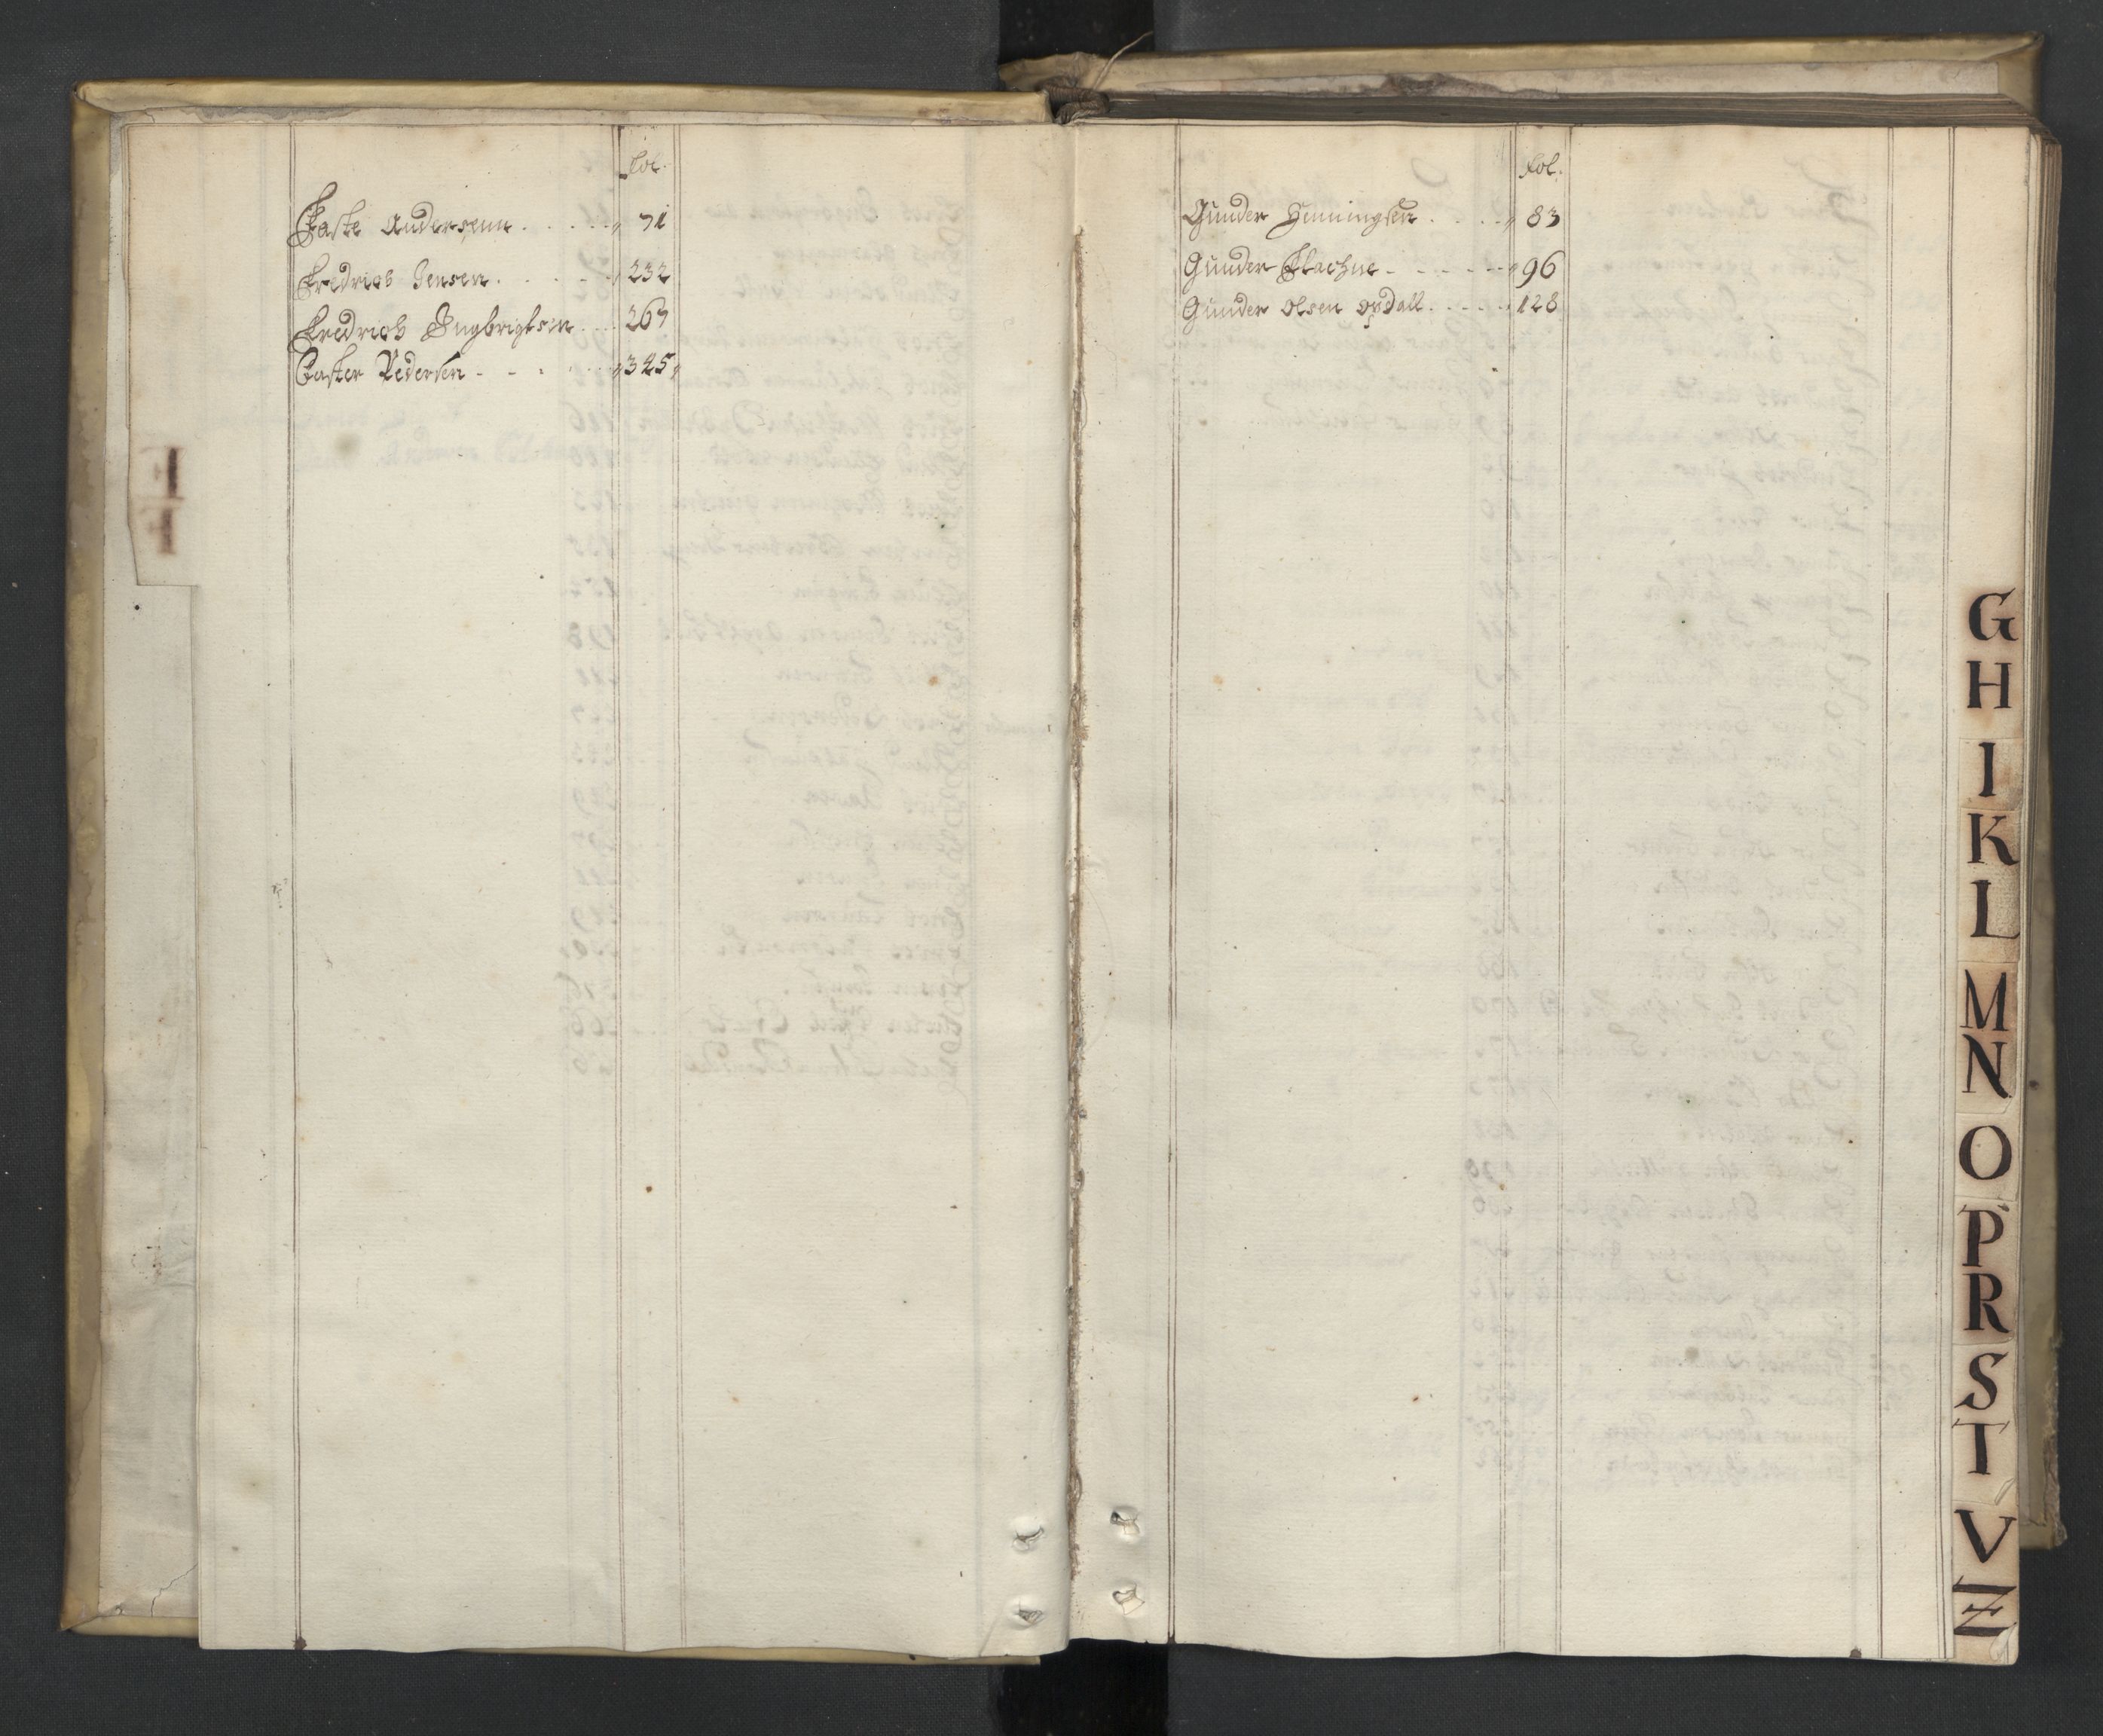 Fol.
Faste Andersenn . . . . . 71
Fredrich Jensen . . . . . 232
Fredrich Ingbrigtsen . . . 267
Faster Pedersen - - . . . 345
Fol.
Gunder Henningsen . . . . 83
Gunder Flachne - - - - - 96
Gunder Olsen Opdall . . . . . 128
G
H
I
K
L
M
N
O
P
R
S
T
V
Z